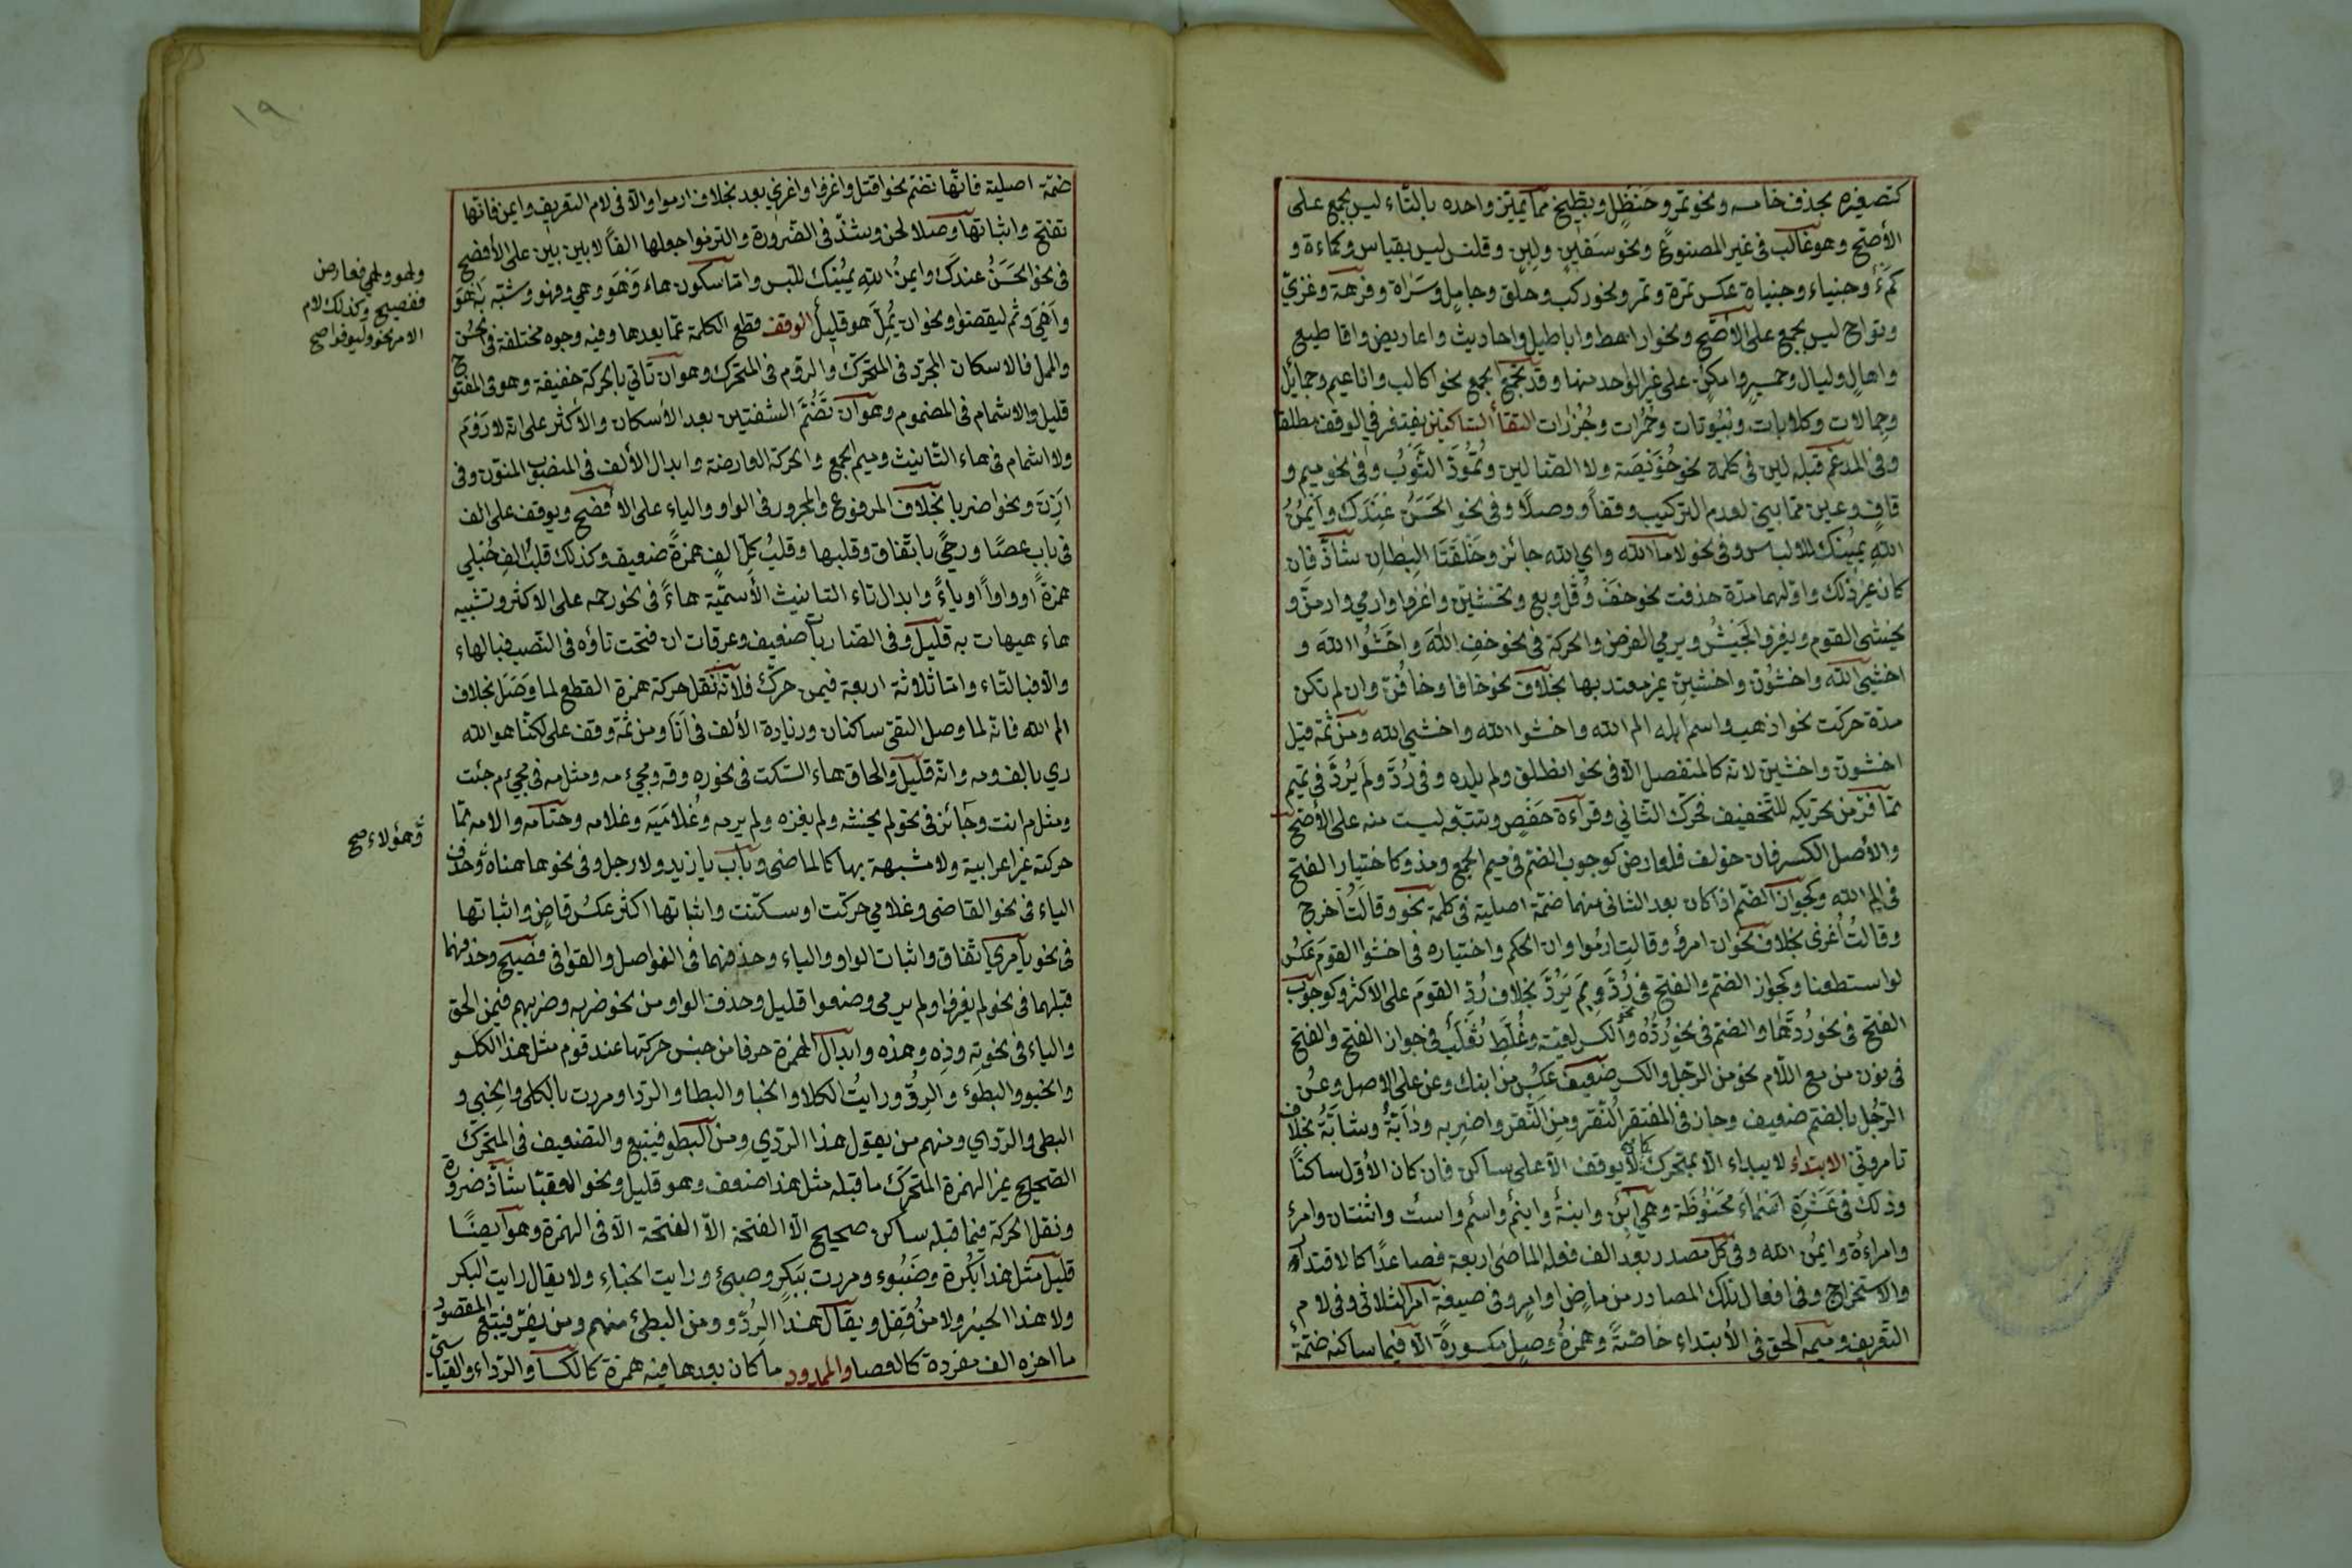 كتصغيره بحذف خامسه ونحو تمر وحنظل وبطيخ مما يميز واحده بالتاء ليس بجمع على
الأصح وهو غالب في غير المصنوع ونحو سفين ولبن وقلنس ليس بقياس وكماءة و
كمء وجبناء وجبناة عكس تمرة وتمر ونحو ركب وحلق وجامل وسراة وفرهة وغزيّ
وتوام ليس بجمع على الأصح ونحو اراهط واباطيل واحاديث واعاريض واقاطيع
واهال وليال وحمير وامكن على غير الواحد منها وقد يجمع الجمع نحو اكالب واناعيم وجمايل
وجمالات وكلابات وبيوتات وحمرات وجزرات التقأ الساكنين يغتفر في الوقف مطلقا
وفي المدغم قبله لين في كلمة نحو خويصة ولا الضالين وتمودّ الثوب وفي نحو ميم و
قاف وعين مما بني لعدم التركيب وقفاً ووصلاً وفي نحو الحسن عندك وآيمن
الله يمينك للالباس وفي نحو لاها الله واي الله جائز وحلقتا البطان شاذ فان
كان غير ذلك واولهما مدة حذفت نحو خف وقل وبع وتخشين واغزوا وارمي وارمن و
يخشى القوم ويغزو الجيش ويرمي الغرض والحركة في نحو خف الله واخشوا الله و
اخشي الله واخشون واخشين غير معتد بها بخلاف نحو خافا وخافن وان لم تكن
مدة حركت نحو اذهب واسم ابله الم الله واخشوا الله واخشي الله ومن ثمه قيل
اخشون واخشين لانه كالمنفصل الا في نحو انطلق ولم يلده وفي ردّ ولم يردّ في تميم
مما فرّ من تحريكه للتخفيف فحرك الثاني وقراءة حفص ويتقه ليست منه على الأصح
والأصل الكسر فان خولف فلعارض كوجوب الضم في ميم الجمع ومذ وكاختيار الفتح
في الم الله وكجواز الضم اذا كان بعد الثاني منهما ضمة اصلية في كلمة نحو وقالت اخرج
وقالت اغزي بخلاف نحو ان امرؤ وقالت ارموا وان الحكم واختياره في اخشوا القوم عكس
لو استطعنا وكجواز الضم والفتح في ردّ ولم يردّ بخلاف ردّ القوم على الاكثر وكوجوب
الفتح في نحو ردّها والضم في نحو ردّه والكسر لغيّة وغلّط ثعلب في جواز الفتح والفتح
في نون من مع اللام نحو من الرجل والكسر ضعيف عكس من ابنك وعن على الاصل وعن
الرجل بالضم ضعيف وجاز في المغتفر النقر ومن النقر واضربه ودابّة وشابّة بخلاف
تامروني الابتداء لا يبداء الا بمتحرك كما لا يوقف الا على ساكن فان كان الأول ساكناً
وذلك في عشرة اسماء محفوظة وهي ابن وابنة وابنم واسم واست واثنتان وامرء
وامراءة وايمن الله وفي كل مصدر بعد الف فعله الماضي اربعة فصاعداً كالاقتداء
والاستخراج وفي افعال تلك المصادر من ماض او امر وفي صيغة امر الثلاثي وفي لام
التعريف وميمه الحق في الأبتداء خاصّةً وهمزة وصل مكسورة الا فيما ساكنه ضمة
١٩
ضمّة اصلية فانّها تضم نحو اقتل واغزوا واغزي بعد بخلاف ارموا والا في لام التعريف وايمن فانها
تفتح واثباتها وصلا لحن وشذّ في الضرورة والتزموا جعلها الفاً لا بين بين على الأفصح
في نحو الحسن عندك وايمن الله يمينك للبس واما سكون هاء وهو وهي وفهو وشبّه به اهو
واهي وثم ليقضوا ونحو ان يملّ هو قليل الوقف قطع الكلمة عما بعدها وفيه وجوه مختلفة في الحسن
والمحل فالاسكان المجرّد في المتحرّك والروم في المتحرك وهو ان تأتي بالحركة خفيفة وهو في المفتوح
قليل والاشمام في المضموم وهو ان تضمّ الشفتين بعد الأسكان والأكثر على ان لا روم
ولا اشمام في هاء التأنيث وميم الجمع والحركة العارضة وابدال الألف في المنصوب المنوّن وفي
اذن ونحو اضربا بخلاف المرفوع والمجرور في الواو والياء على الافصح ويوقف على الف
في باب عصًا ورحًى باتفاق وقلبها وقلب كل الف همزةً ضعيف وكذلك قلب الف حبلى
همزةً او واواً او ياءً وابدال تاء التأنيث الأسميّة هاءً في نحو رحمه على الاكثر وتشبيه
هاء هيهات به قليل وفي الضاربات ضعيف وعرقات ان فتحت تاؤه في النصب فبالهاء
والا فبالتاء واما ثلاثة اربعة فيمن حرّك فلانّه نقل حركة همزة القطع لما وصل بخلاف
الم الله فانه لما وصل التقى ساكنان وزيادة الألف في أنا ومن ثمّ وقف على لكنّا هو الله
ربي بالف ومه وانه قليل والحاق هاء السكت في نحو ره وقه ومجيء مه ومثل مه في مجيء م جئت
ومثل م انت وجائز في نحو لم يخشه ولم يغزه ولم يرمه وغلاميه وغلامه وحتامه والامه مما
حركته غير اعرابية ولا مشبهة بها كالماضي وباب يا زيد ولا رجل وفي نحو هاهناه وحذف
الياء في نحو القاضي وغلامي حركت او سكنت واثباتها اكثر عكس قاض واثباتها
في نحو يا مري اتفاق واثبات الواو والياء وحذفهما في الفواصل والقوافي فصيح وحذفهما
قبلهما في نحو لم يغزوا ولم يرمي وصنعوا قليل وحذف الواو من نحو ضربه وضربهم فيمن الحق
والياء في نحو ته وذه وهذه وابدال الهمزة حرفا من جنس حركتها عند قوم مثل هذا الكلو
والخبو والبطو والردو ورايت الكلا والخبا والبطا والردا ومررت بالكلى والخبي و
البطى والردي ومنهم من يقول هذا الردي ومن البطو فيتبع والتضعيف في المتحرك
الصحيح غير الهمزة المتحرك ما قبله مثل هذا ضعف وهو قليل ونحو القصبّا شاذّ ضرورة
ونقل الحركة فيما قبله ساكن صحيح الا الفتحة الاّ الفتحة الا في الهمزة وهو ايضًا
قليل مثل هذا بكر وخبو ومررت ببكر وخبئ ورايت الخباء ولا يقال رايت البكر
ولا هذا الحبر ولا من قفل ويقال هذا الردو ومن البطئ منهم ومن يفرّ فيتبع المقصور
ما اخره الف مفردة كالعصا والممدود ما كان بعدها فيه همزة كالكسا والرداء والقيا-
سيّ
ولهو ولهي فعارض
ففصيح وكذلك لام
الامر نحو وليوفوا صح
وهؤلاء صح